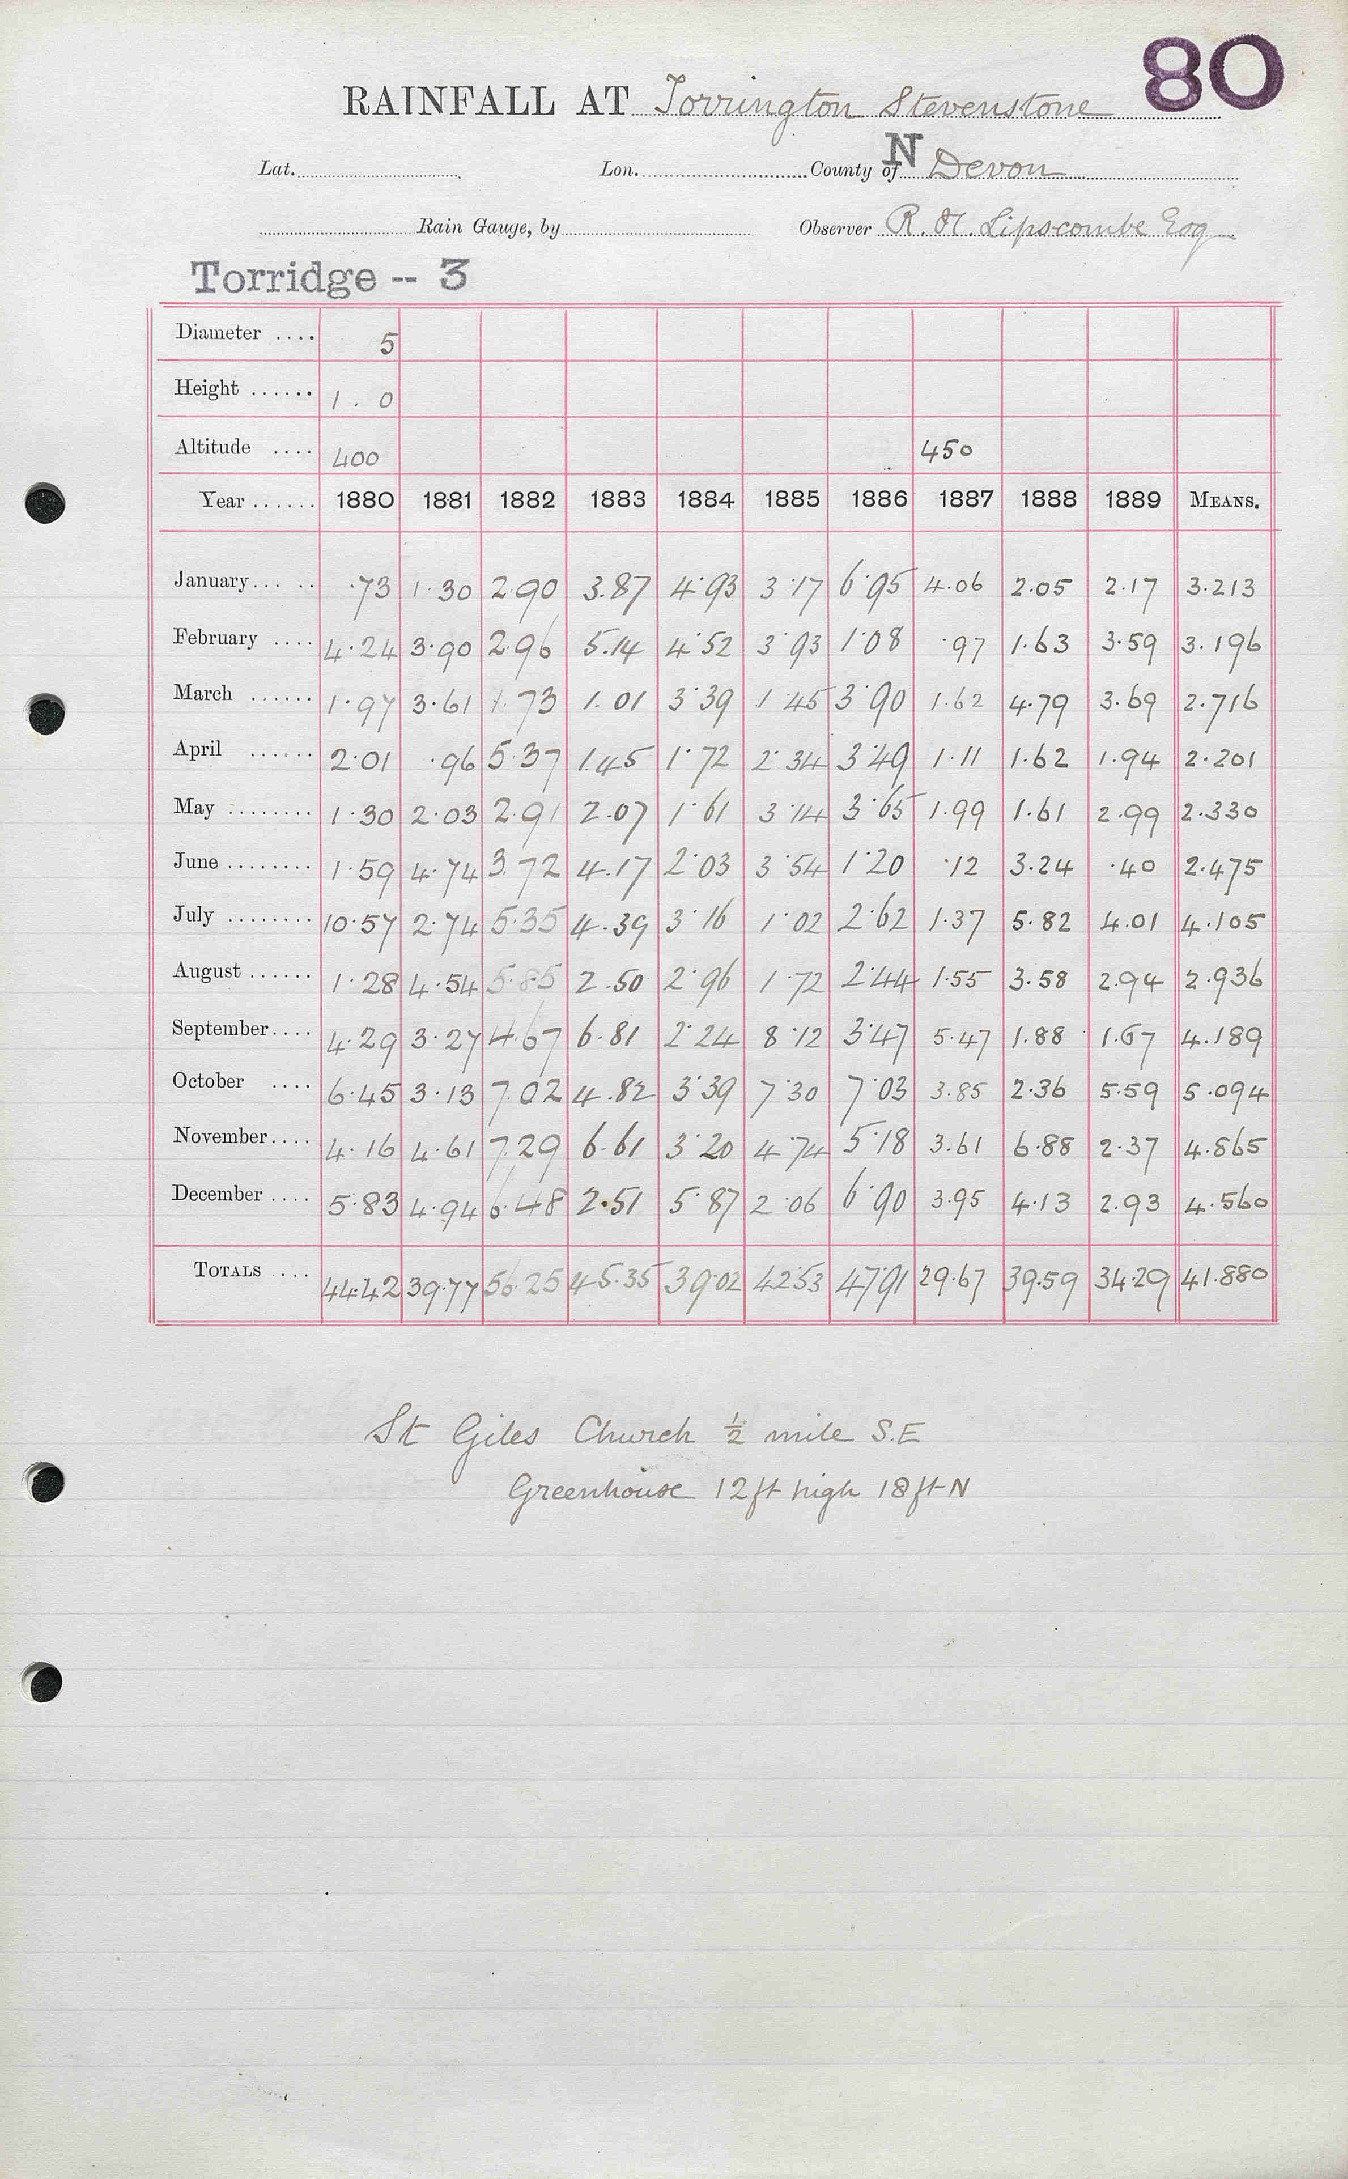 80
RAINFALL AT Torrington Stevenstone
Lat. Lon. County of N Devon
Rain Gauge, by Observer R. H. Lipscombe Esq
Torridge -- 3
Diameter .... 5
Height ...... 1 . 0
Altitude .... 400 450
Year ...... 1880 1881 1882 1883 1884 1885 1886 1887 1888 1889 MEANS.
January... .. .73 1.30 2.90 3.87 4.93 3.17 6.95 4.06 2.05 2.17 3.213
February .... 4.24 3.90 2.96 5.14 4.52 3.93 1.08 .97 1.63 3.59 3.196
March ...... 1.97 3.61 1.73 1.01 3.39 1.45 3.90 1.62 4.79 3.69 2.716
April ...... 2.01 .96 5.37 1.45 1.72 2.34 3.49 1.11 1.62 1.94 2.201
May ........ 1.30 2.03 2.91 2.07 1.61 3.14 3.65 1.99 1.61 2.99 2.330
June ........ 1.59 4.74 3.72 4.17 2.03 3.54 1.20 .12 3.24 .40 2.475
July ........ 10.57 2.74 5.35 4.39 3.16 1.02 2.62 1.37 5.82 4.01 4.105
August ...... 1.28 4.54 5.85 2.50 2.96 1.72 2.44 1.55 3.58 2.94 2.936
September.... 4.29 3.27 4.67 6.81 2.24 8.12 3.47 5.47 1.88 1.67 4.189
October .... 6.45 3.13 7.02 4.82 3.39 7.30 7.03 3.85 2.36 5.59 5.094
November.... 4.16 4.61 7.29 6.61 3.20 4.74 5.18 3.61 6.88 2.37 4.865
December .... 5.83 4.94 6.48 2.51 5.87 2.06 6.90 3.95 4.13 2.93 4.560
TOTALS .... 44.42 39.77 56.25 45.35 39.02 42.53 47.91 29.67 39.59 34.29 41.880
St Giles Church ½ mile S.E
Greenhouse 12ft high 18ft N